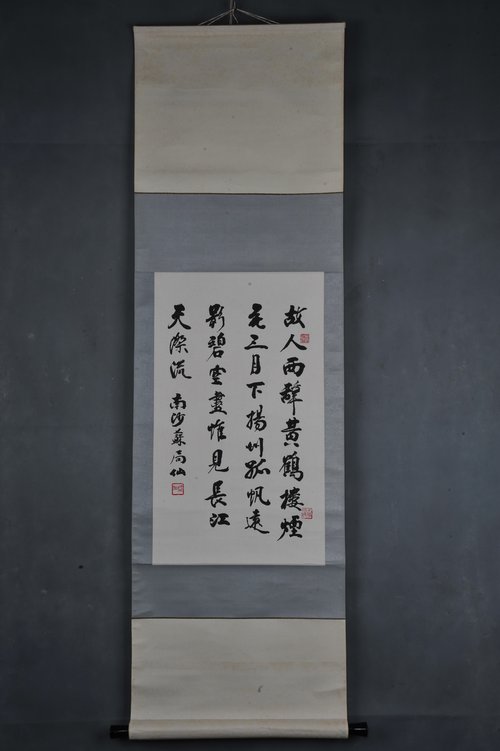 故人西辭黃鶴樓煙
花三月下揚州孤帆遠
影碧空盡惟見長江
天際流 南沙蘇局仙